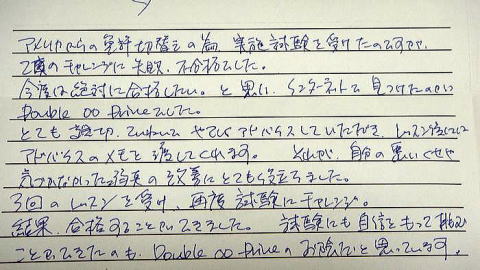 アメリカからの免許切替えの為、実施試験を受けたのですが、
2度のチャレンジに失敗、不合格でした。
今度は絶対に合格したい。と思い、インターネットで見つけたのがい
Double OO Driveでした。
とても親切、ていねいで やさしくアドバイスしていただき、レッスン後には
アドバイスのメモを渡してくれます。 それが、自分の悪いくせや
気づかなかった弱点の改善にとても役立ちました。
3回のレッスンを受け、再度試験にチャレンジ。
結果、合格することができました。 試験にも自信をもって挑む
ことができたのも、Double OO Driveのお陰だと思っています。